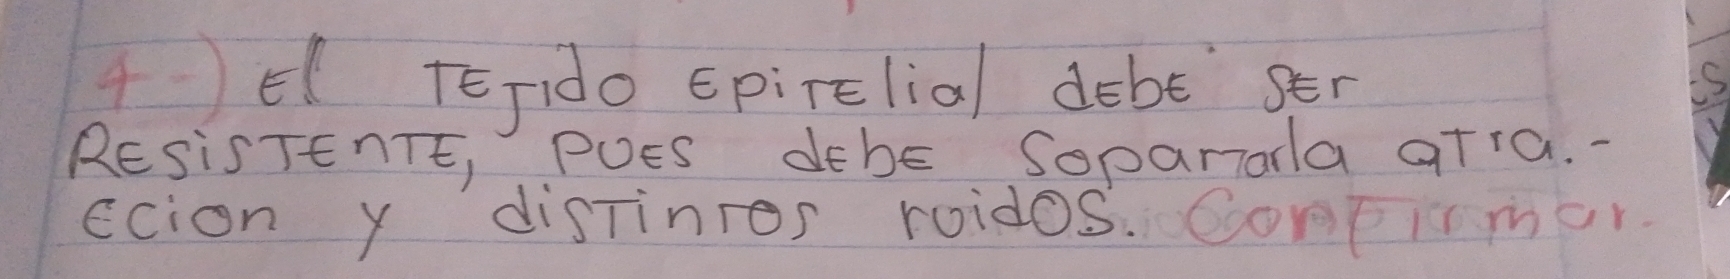 4-) El TEJIdO EpiTElial dEbE SEr
RESiSTEnTE, PUES dEbE Soparrarla aTra.-
Ecion y disTinTos ruidos. ConFirmar.